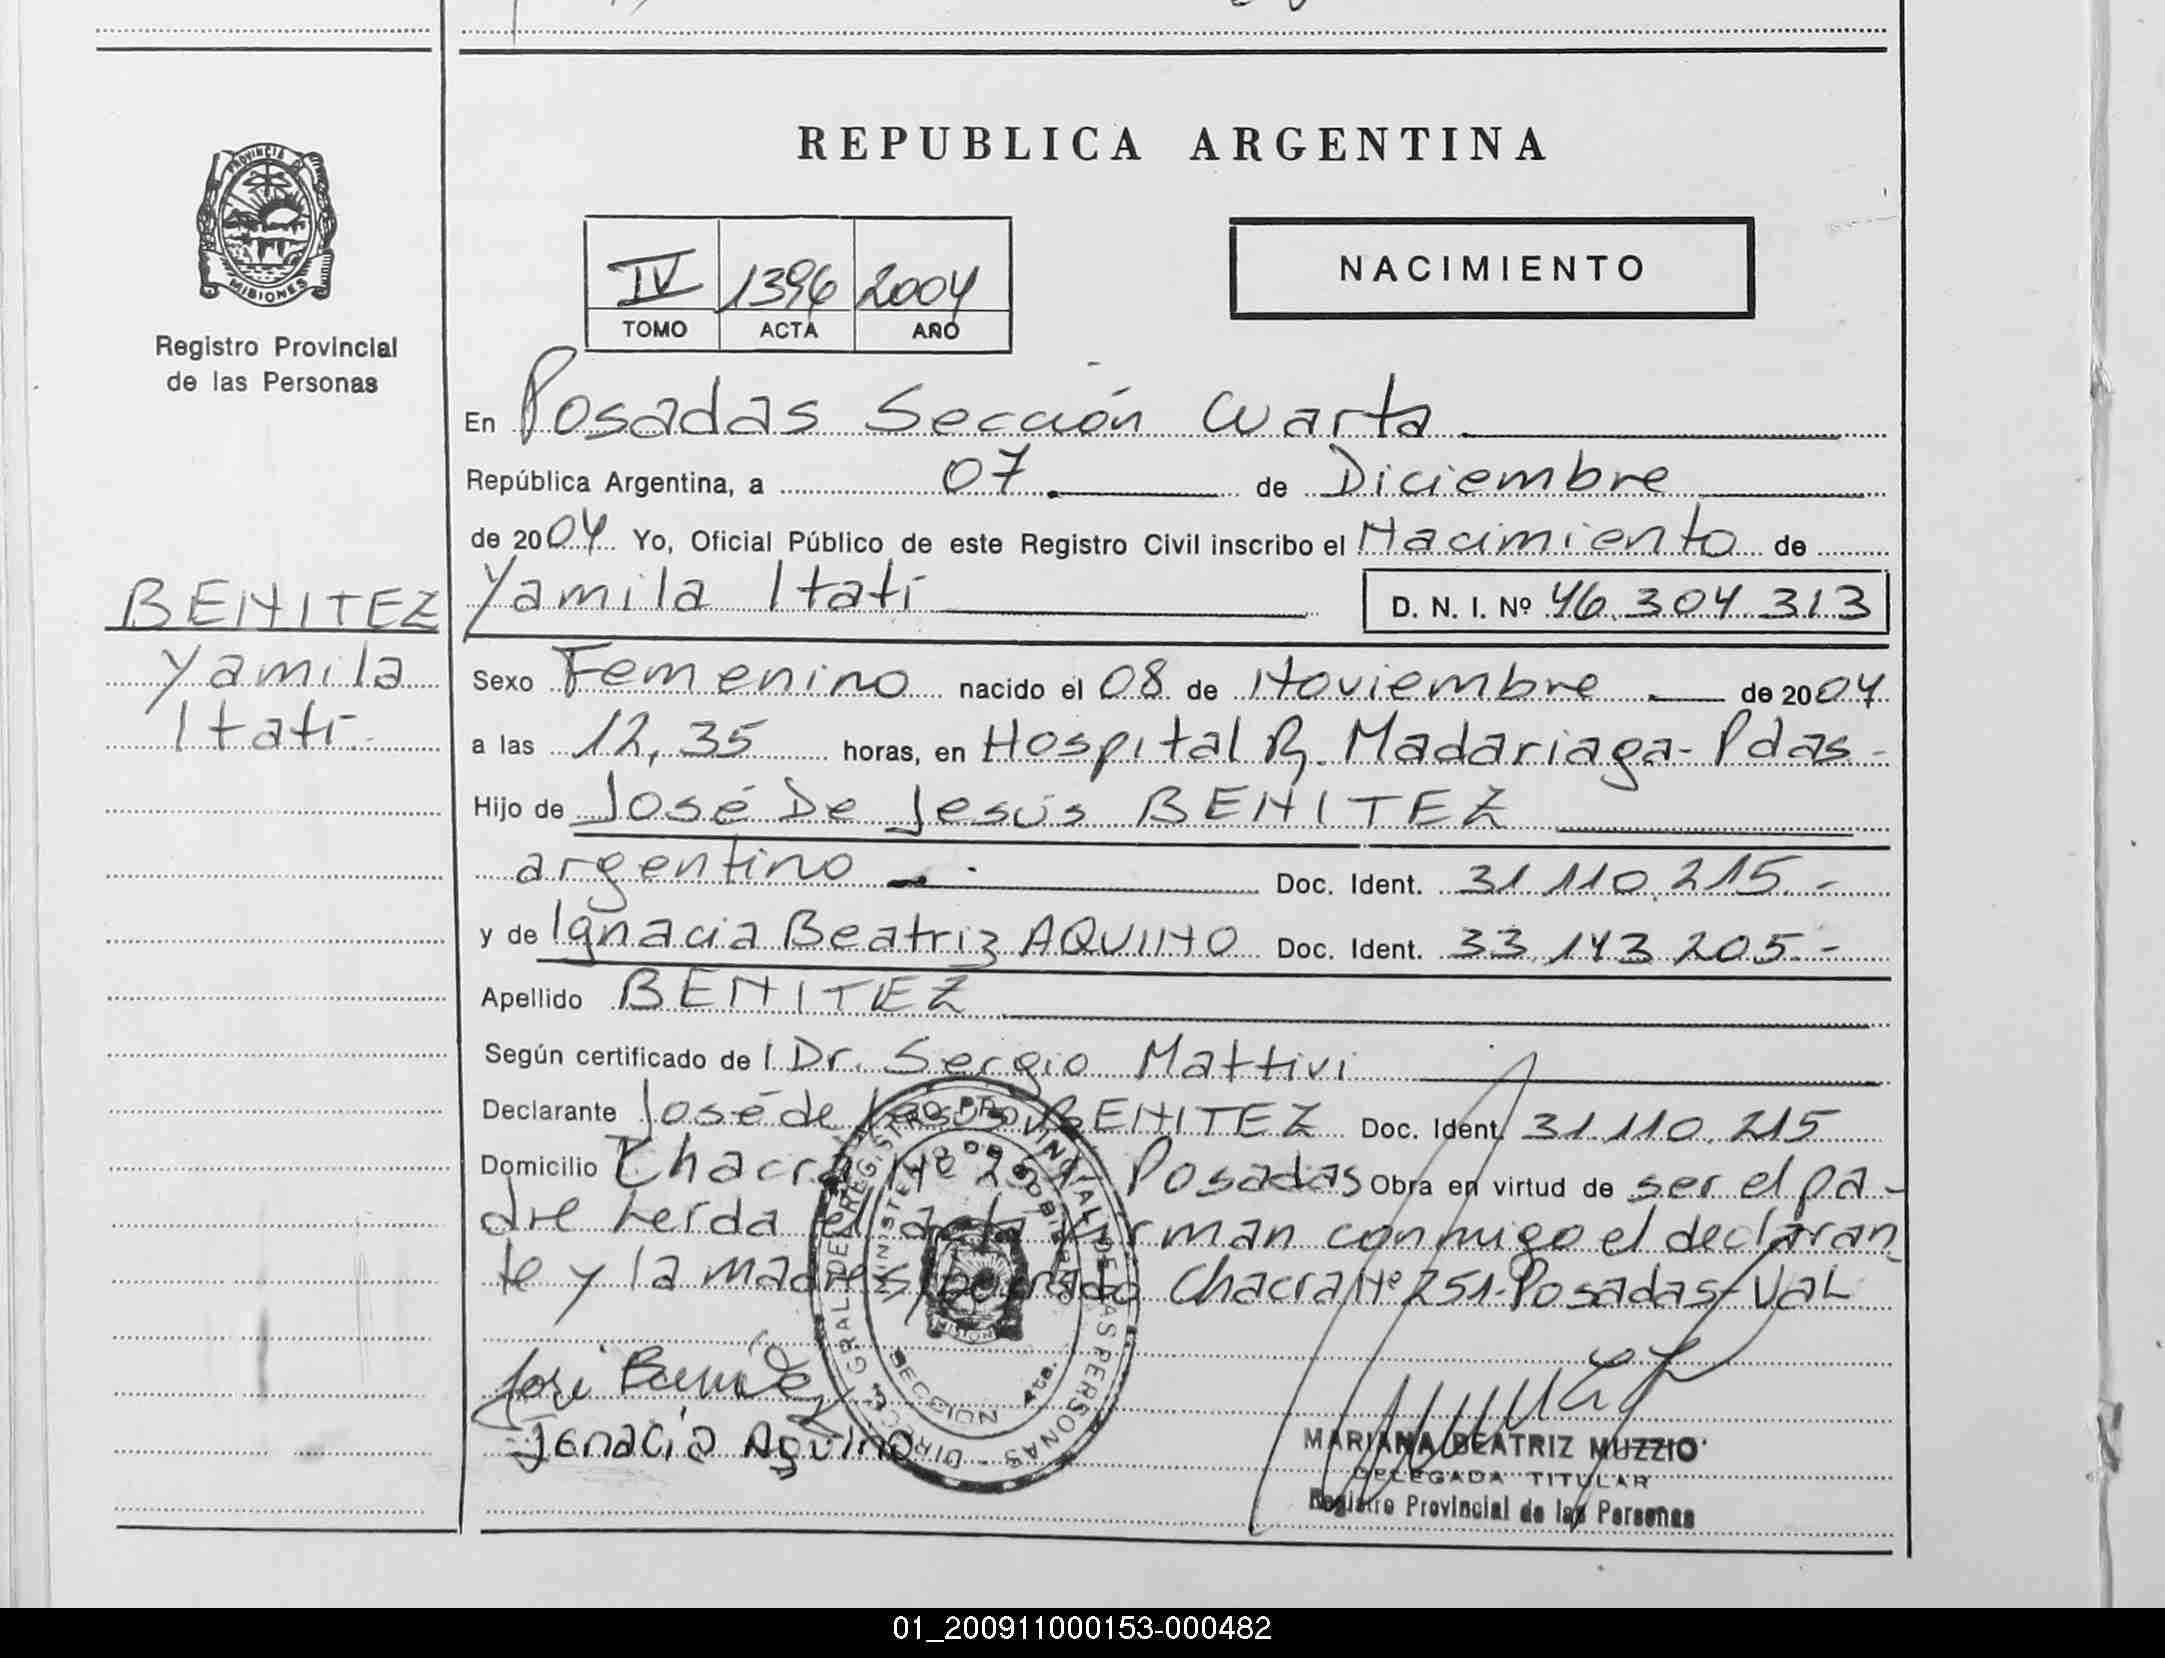 REPUBLICA ARGENTINA
PROVINCIA DE
MISIONES
Registro Provincial
de las Personas
IV 1396 2004
TOMO ACTA AÑO
NACIMIENTO
En Posadas Sección Cuarta
República Argentina, a 07 de Diciembre
de 2004 Yo, Oficial Público de este Registro Civil inscribo el Nacimiento de
Yamila Itatí D. N. I. Nº 46.304.313
BENITEZ
Yamila
Itatí.-
Sexo Femenino nacido el 08 de Noviembre de 2004
a las 12,35 horas, en Hospital R. Madariaga-Pdas-
Hijo de José De Jesús BENITEZ
argentino Doc. Ident. 31.110.215.-
y de Ignacia Beatriz AQUINO Doc. Ident. 33.143.205.-
Apellido BENITEZ
Según certificado de l Dr. Sergio Mattivi
Declarante José de Jesús BENITEZ Doc. Ident. 31.110.215
Domicilio Chacra Nº 251 Posadas Obra en virtud de ser el pa-
dre Leída el acta firman conmigo el declaran
te y la madre s/ Chacra Nº 251-Posadas-VaL
José Benitez
Ignacia Aquino
DIRECC. GRAL. DEL REGISTRO PROVINCIAL DE LAS PERSONAS
MINISTERIO DE GOBIERNO
SECCION 4ta.
MARIANA BEATRIZ MUZZIO
DELEGADA TITULAR
Registro Provincial de las Personas
01_200911000153-000482